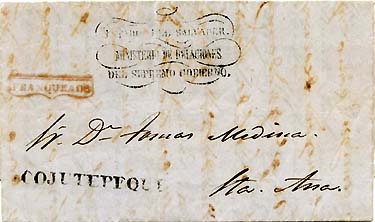 ESTADO DEL SALVADOR.
MINISTERIO DE RELACIONES
DEL SUPREMO GOBIERNO.
FRANQUEADO
Sr. Dn. Tomas Medina.
COJUTEPEQUE
Sta. Ana.